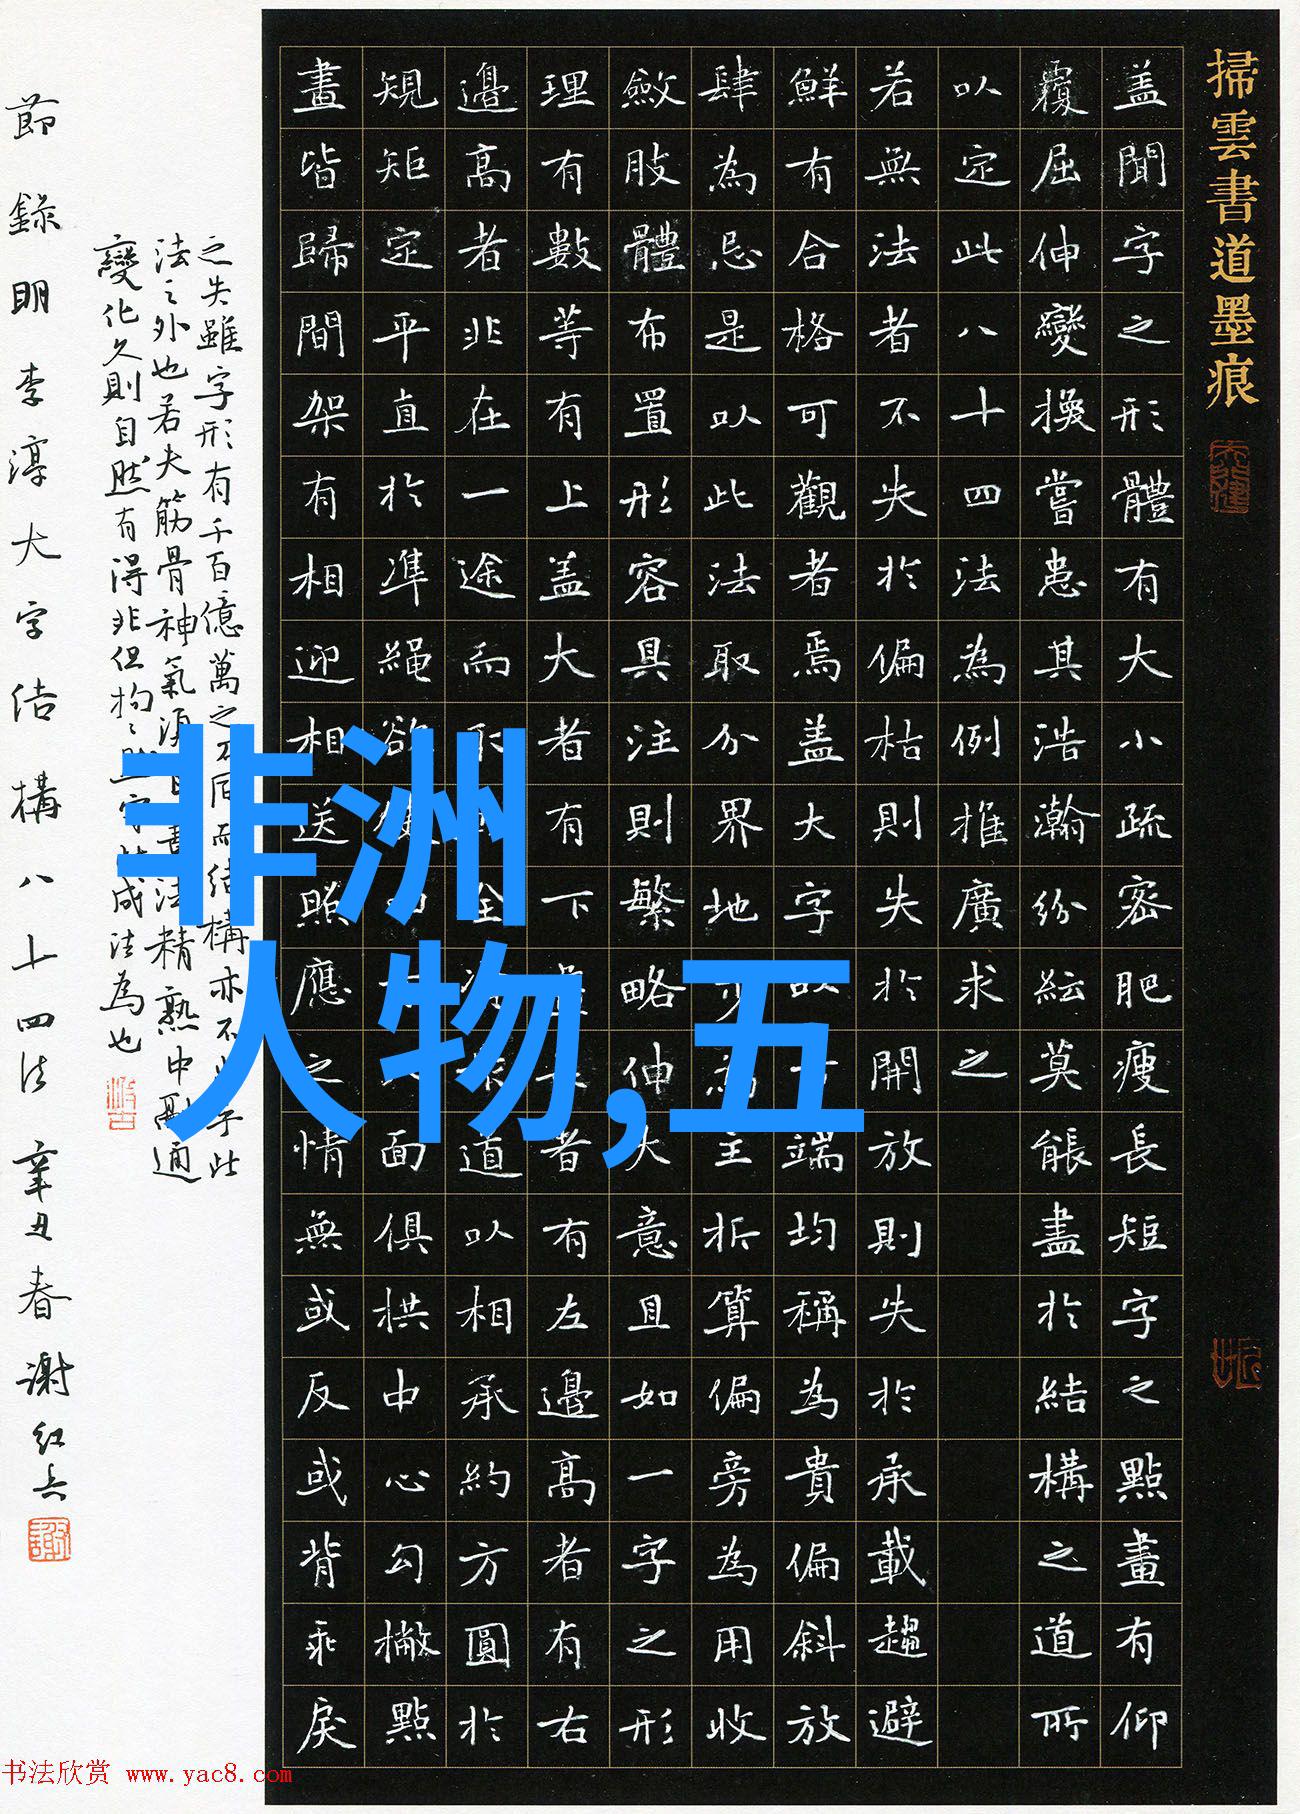 掃雲書道墨痕
盖聞字之形體有大小疏密肥瘦長短字之點畫有仰
覆屈伸變換嘗患其浩瀚紛紜莫能盡於結構之道所
以定此八十四法為例推廣求之
若無法者不失於偏枯則失於開放則失於承載趨避
鮮有合格可觀者焉盖大字端均稱為貴偏斜放
肆為忌是以此法取分界地步為主折算偏旁為用收
斂肢體布置形容具注則繁略伸大意且如一字之形
理有數等有上盖大者有下者有左邊高者有右
邊高者非在一途而取全道以相承約方圓於
規矩定平直於準繩欲面俱拱中心勾撇點
畫皆歸間架有相迎相送照應之情無或反或背乖戾
之失雖字形有千百億萬之不同而結構亦不出乎此
法之外也若夫筋骨神氣須自書法精熟中融通
變化久則自然有得非但拘成法為也
節錄明李淳大字結構八十四法辛丑春謝紅兵
非洲
人物,五
书法欣赏 www.yac8.com